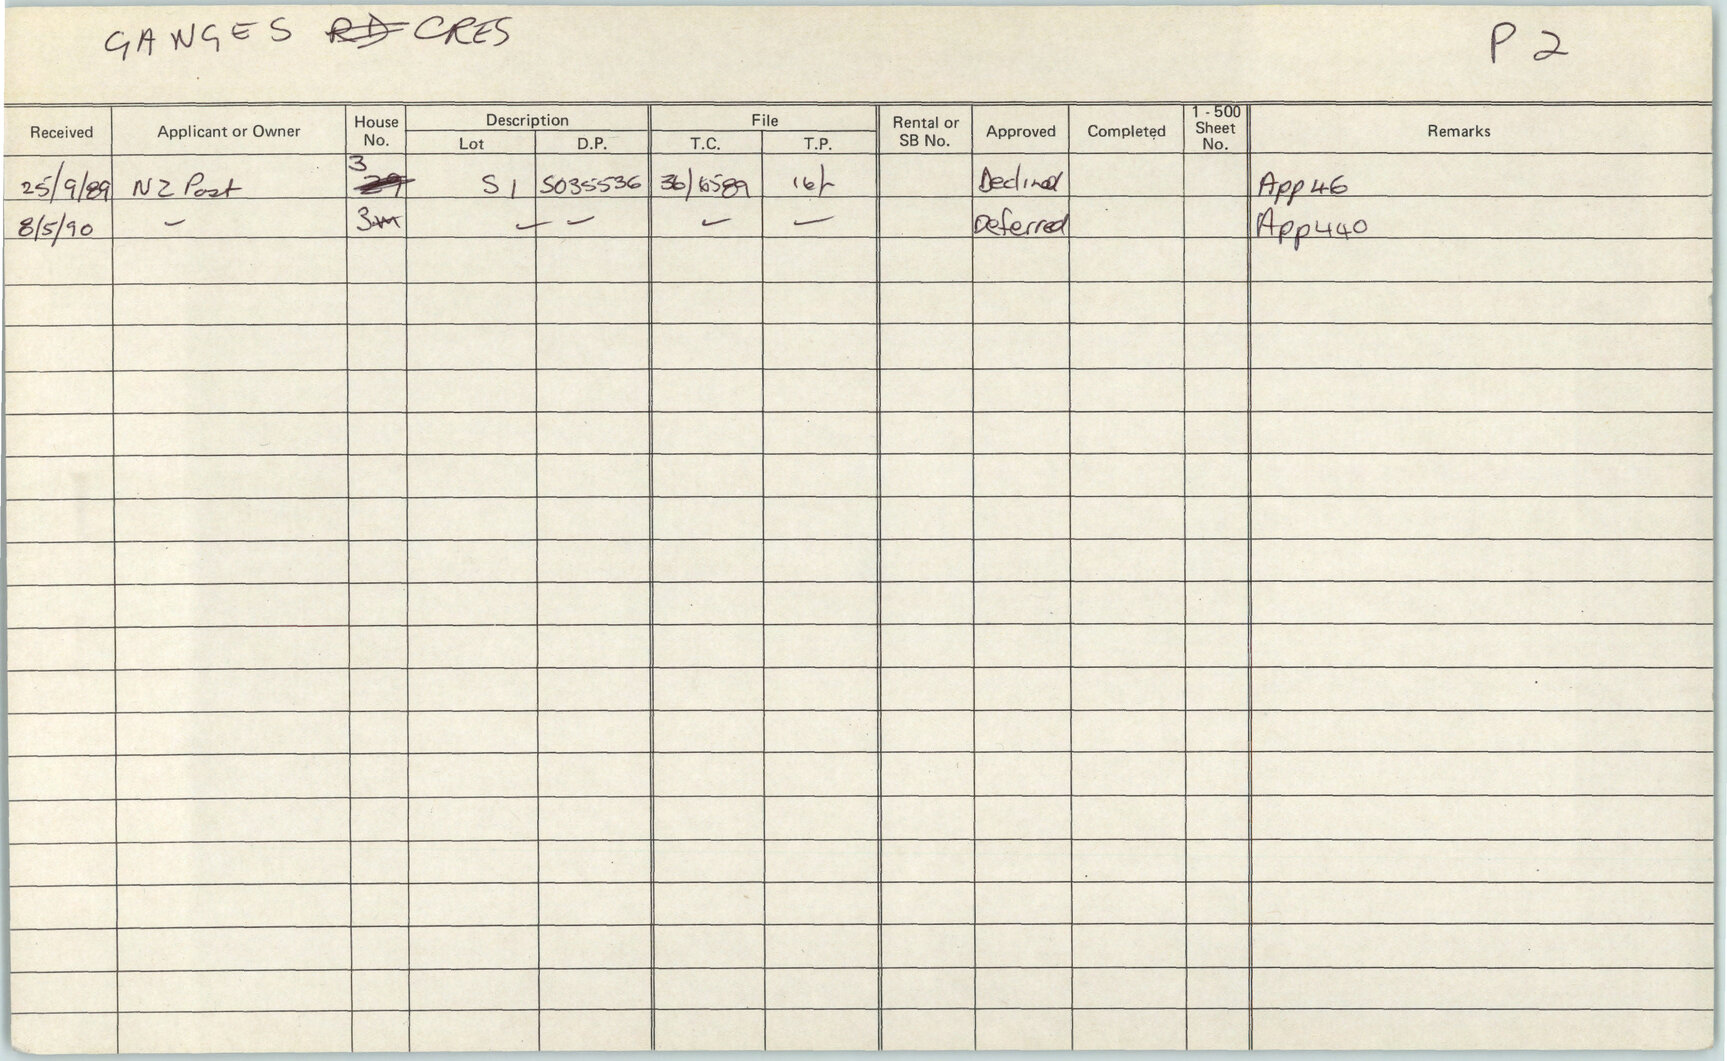 GANGES RD CRES P 2
Received Applicant or Owner House No. Description Lot D.P. File T.C. T.P. Rental or SB No. Approved Completed 1-500 Sheet No. Remarks
3
25/9/89 NZ Post S 1 SO35536 36/6589 16/- Declined App 46
8/5/90 - 3 - - - - Deferred App 440